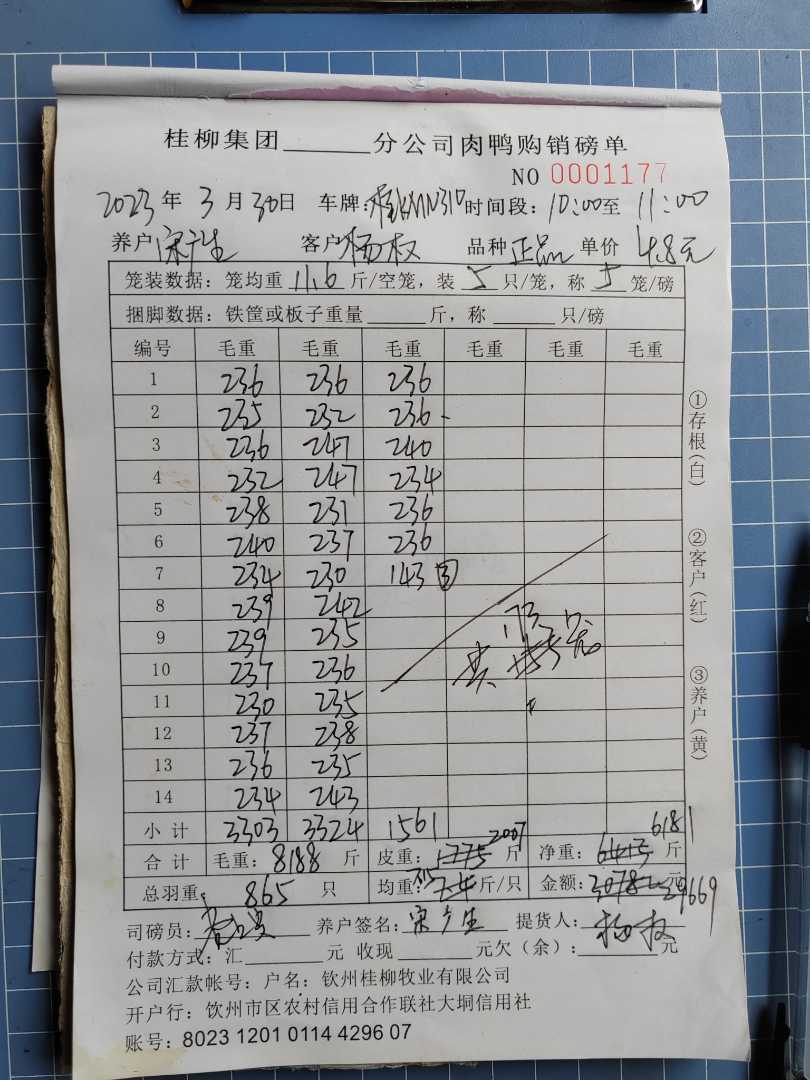 桂柳集团______分公司肉鸭购销磅单
NO 0001177
2023年3月30日 车牌:桂KMN310 时间段:10:00至11:00
养户 宋广生 客户 杨权 品种 正品 单价 4.8元
笼装数据:笼均重 11.6 斤/空笼,装 5 只/笼,称 5 笼/磅
捆脚数据:铁筐或板子重量______斤,称______只/磅
编号 毛重 毛重 毛重 毛重 毛重 毛重
1 236 236 236
2 235 232 236
3 236 247 240
4 232 247 234
5 238 231 236
6 240 237 236
7 234 230 143 ③
8 239 242
9 239 235
10 237 236
11 230 235
12 237 238
13 236 235
14 234 243
173
共 笼
小计 3303 3324 1561
2007 6181
合计 毛重:8188斤 皮重:1775斤 净重:6413斤
总羽重:865只 均重:7.4斤/只 金额:30782元 29669
司磅员: 养户签名:宋广生 提货人:杨权
付款方式:汇______元 收现______元欠(余):______元
公司汇款帐号:户名:钦州桂柳牧业有限公司
开户行:钦州市区农村信用合作联社大垌信用社
账号:8023 1201 0114 4296 07
①存根(白)
②客户(红)
③养户(黄)